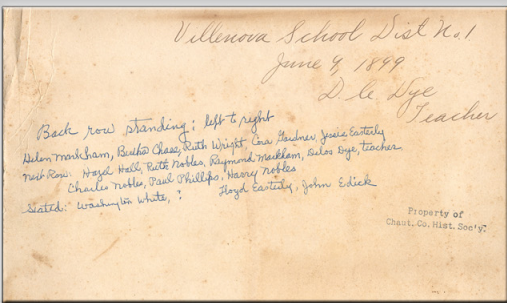 Villenova School Dist No. 1
June 9, 1899
D. C. Dye
Teacher
Back row standing: left to right
Helen Markham, Bertha Chase, Ruth Wright, Cora Gardner, Jessie Easterly
Next Row. Hazel Hall, Ruth Nobles, Raymond Markham, Delos Dye, teacher
Charles Nobles, Paul Phillips, Harry Nobles
Seated: Washington White, ? Floyd Easterly, John Edick
Property of
Chaut. Co. Hist. Soc'y.